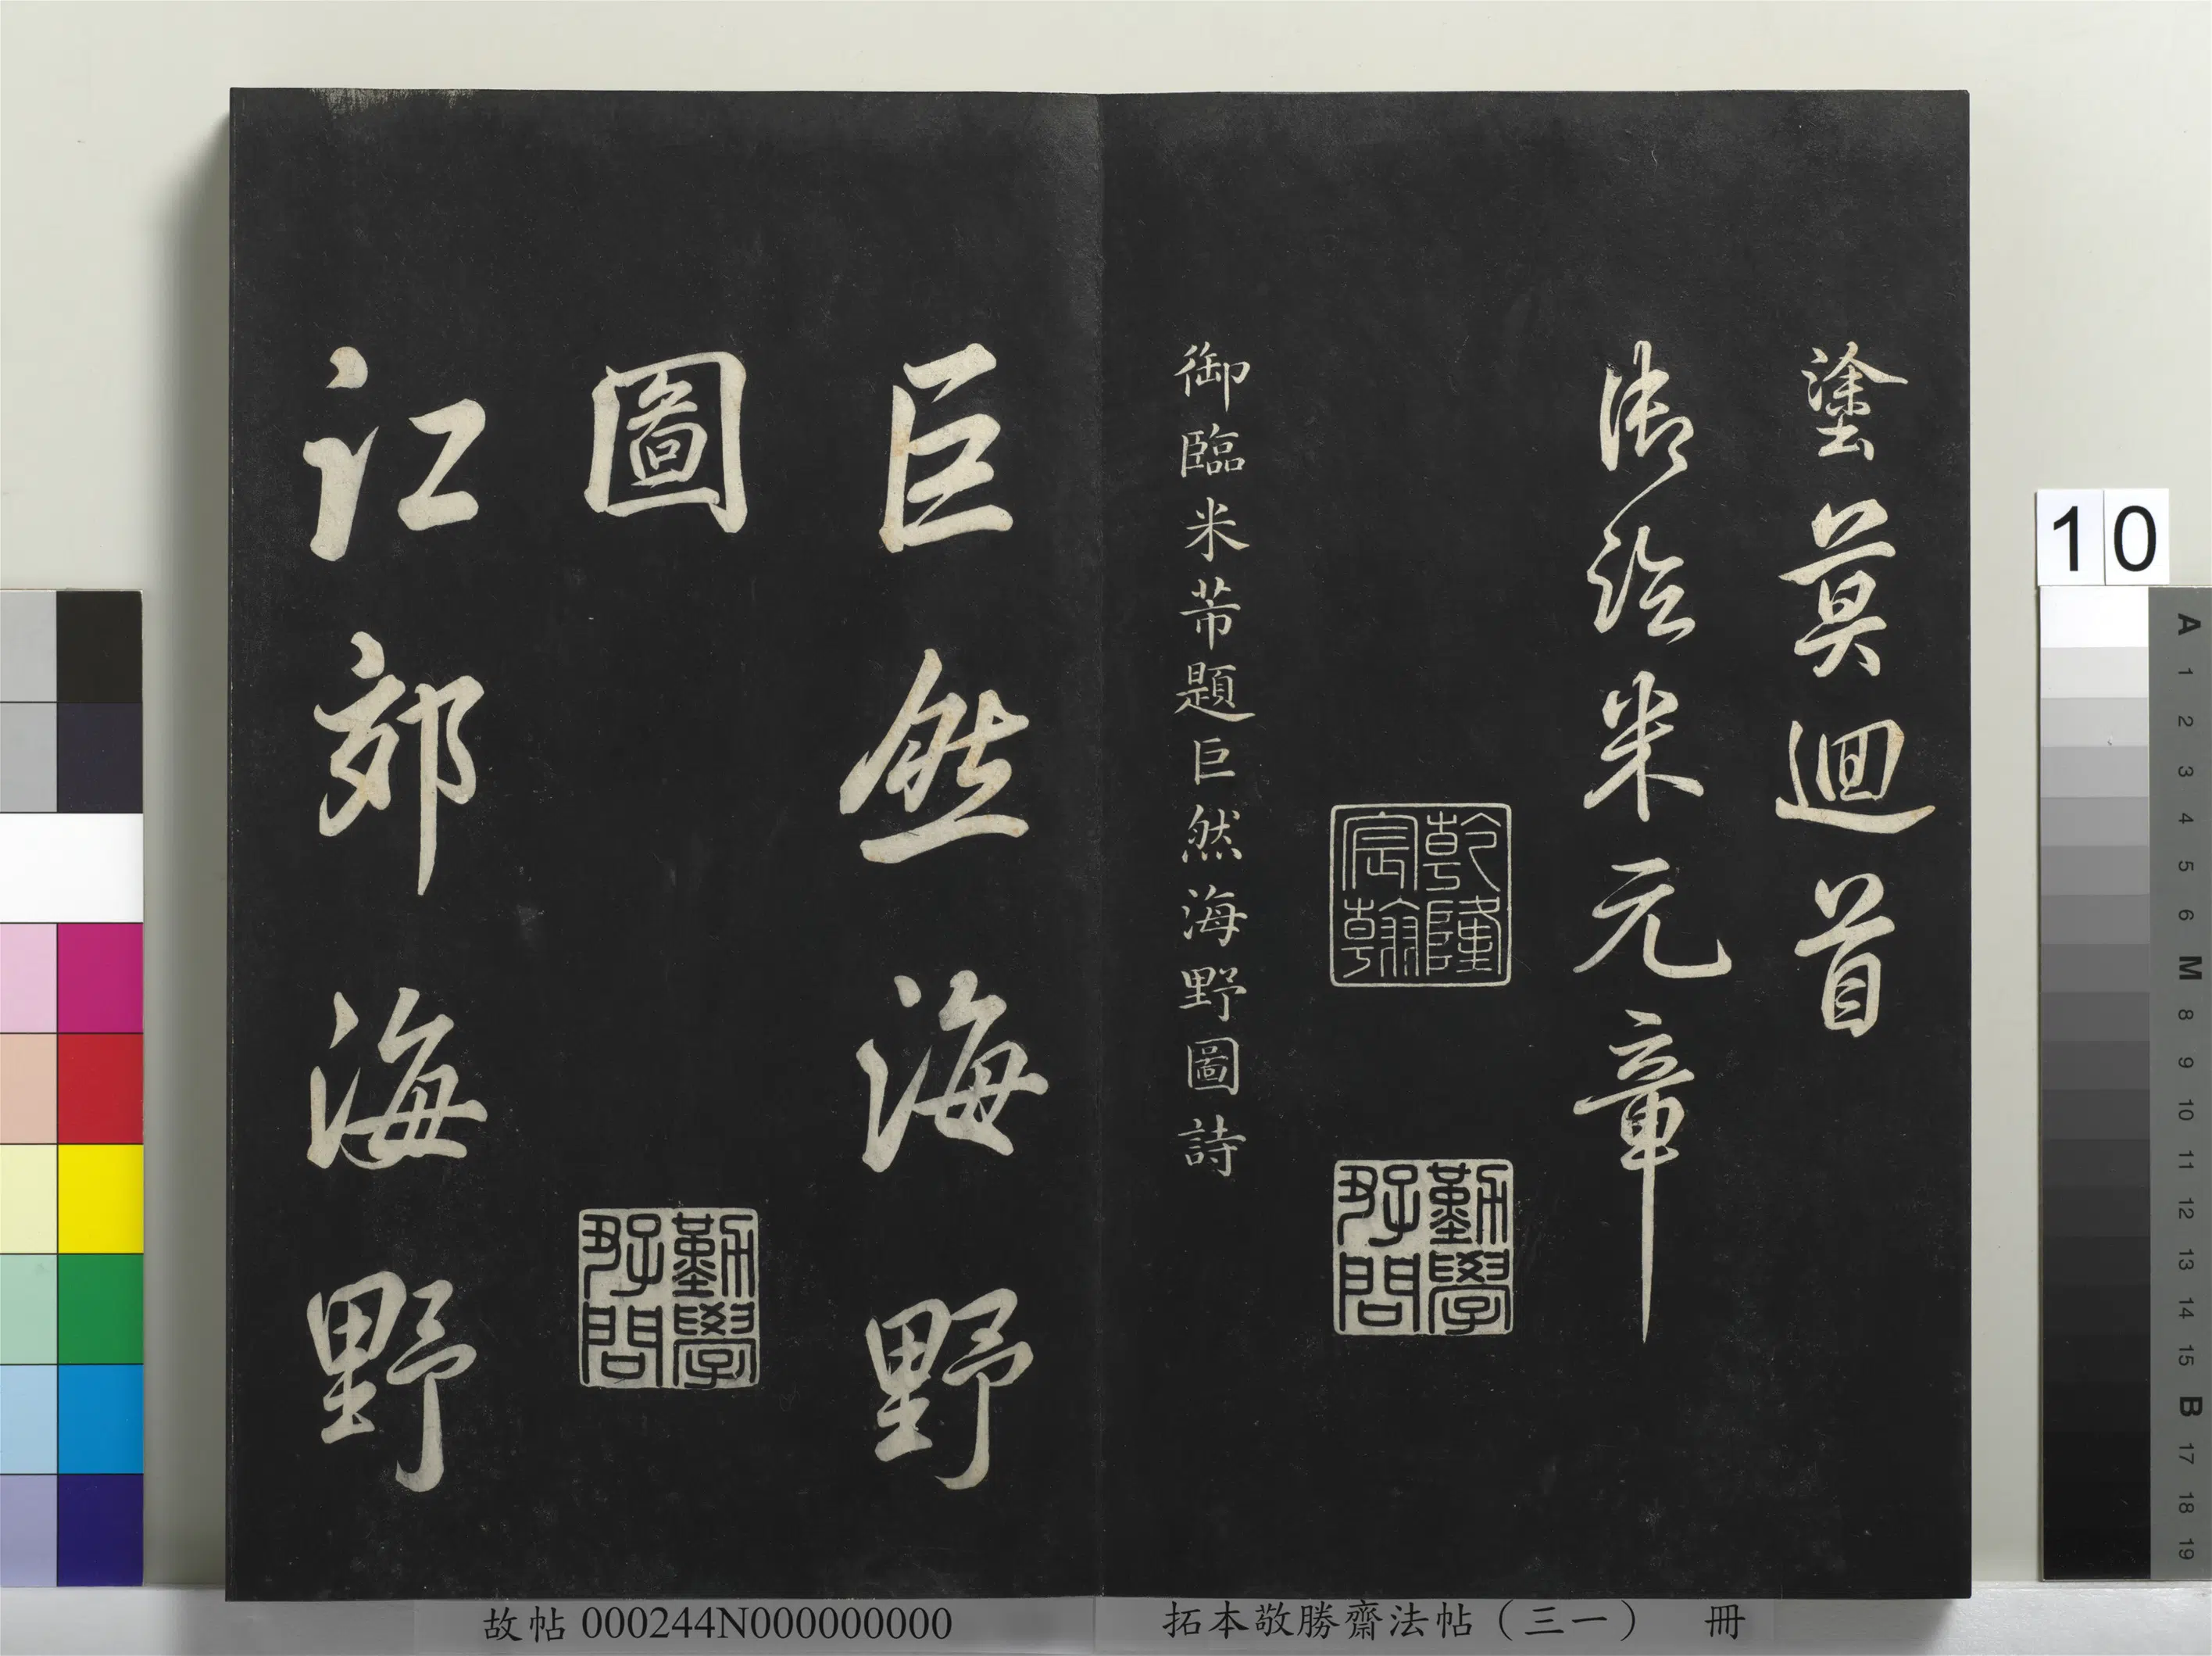 塗莫迴首
米元章
乾隆宸翰
勤學好問
御臨米芾題巨然海野圖詩
巨然海野
圖
勤學好問
江郊海野
故帖 000244N000000000
拓本敬勝齋法帖（三一） 冊
10
A 1 2 3 4 5 6 M 8 9 10 11 12 13 14 15 B 17 18 19